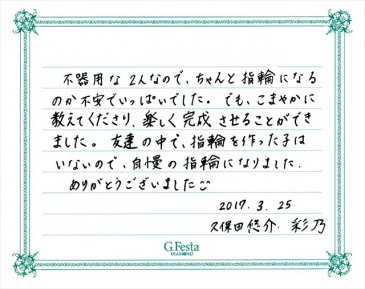 不器用な2人なので、ちゃんと指輪になる
のか不安でいっぱいでした。でも、こまやかに
教えてくださり、楽しく完成させることができ
ました。友達の中で、指輪を作った子は
いないので、自慢の指輪になりました。
ありがとうございました
2017.3.25
久保田悠介 彩乃
G.Festa
DIAMOND